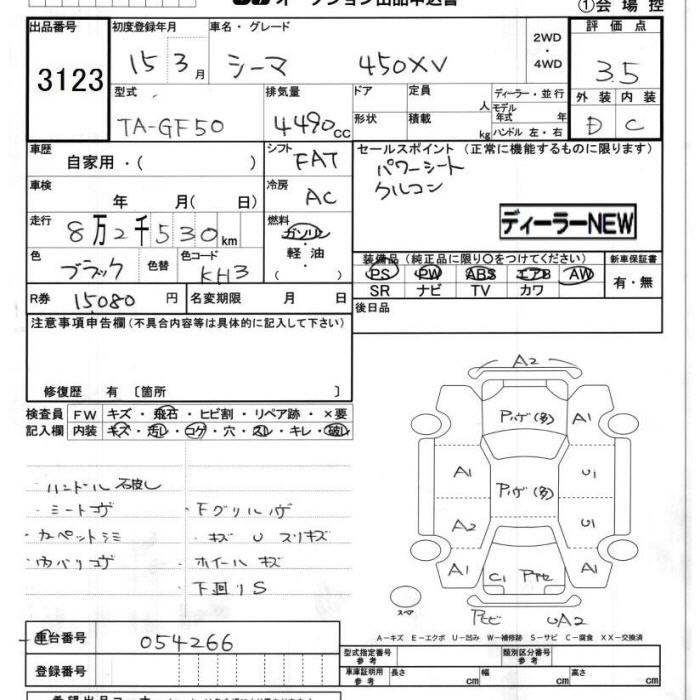 オークション出品申込書
①会場控
出品番号 初度登録年月 車名・グレード 2WD・4WD 評価点
3123 15 3月 シーマ 450XV 3.5
型式 排気量 ドア 定員 人 ディーラー・並行 モデル年式 年 外装 内装
TA-GF50 4490cc 形状 積載 kg ハンドル 左・右 D C
車歴 シフト セールスポイント (正常に機能するものに限ります)
自家用・( ) FAT パワーシート
車検 冷房 クルコン
年 月( 日) AC
走行 燃料 ディーラーNEW
8万2千530km ガソリン・軽油
装備品 (純正品に限り○をつけてください) 新車保証書
色 色替 色コード ( ) PS PW ABS エアB AW 有・無
ブラック KH3 SR ナビ TV カワ
R券 15080 円 名変期限 月 日 後日品
注意事項申告欄(不具合内容等は具体的に記入して下さい)
修復歴 有 〔箇所 〕
検査員 FW キズ・飛石・ヒビ割・リペア跡・×要
記入欄 内装 キズ・汚レ・コゲ・穴・スレ・キレ・破レ
A2
A1
A1 U1
A2 U1
A1 A1
C1
UA2
スペア
シートコゲ Fグリルハゲ
カーペットシミ キズ U スリキズ
ホイールキズ
下廻りS
A-キズ E-エクボ U-凹み W-補修跡 S-サビ C-腐食 XX-交換済
車台番号 054266 型式指定番号 参考 類別区分番号 参考
登録番号 車庫証明用 参考 長さ cm 幅 cm 高さ cm